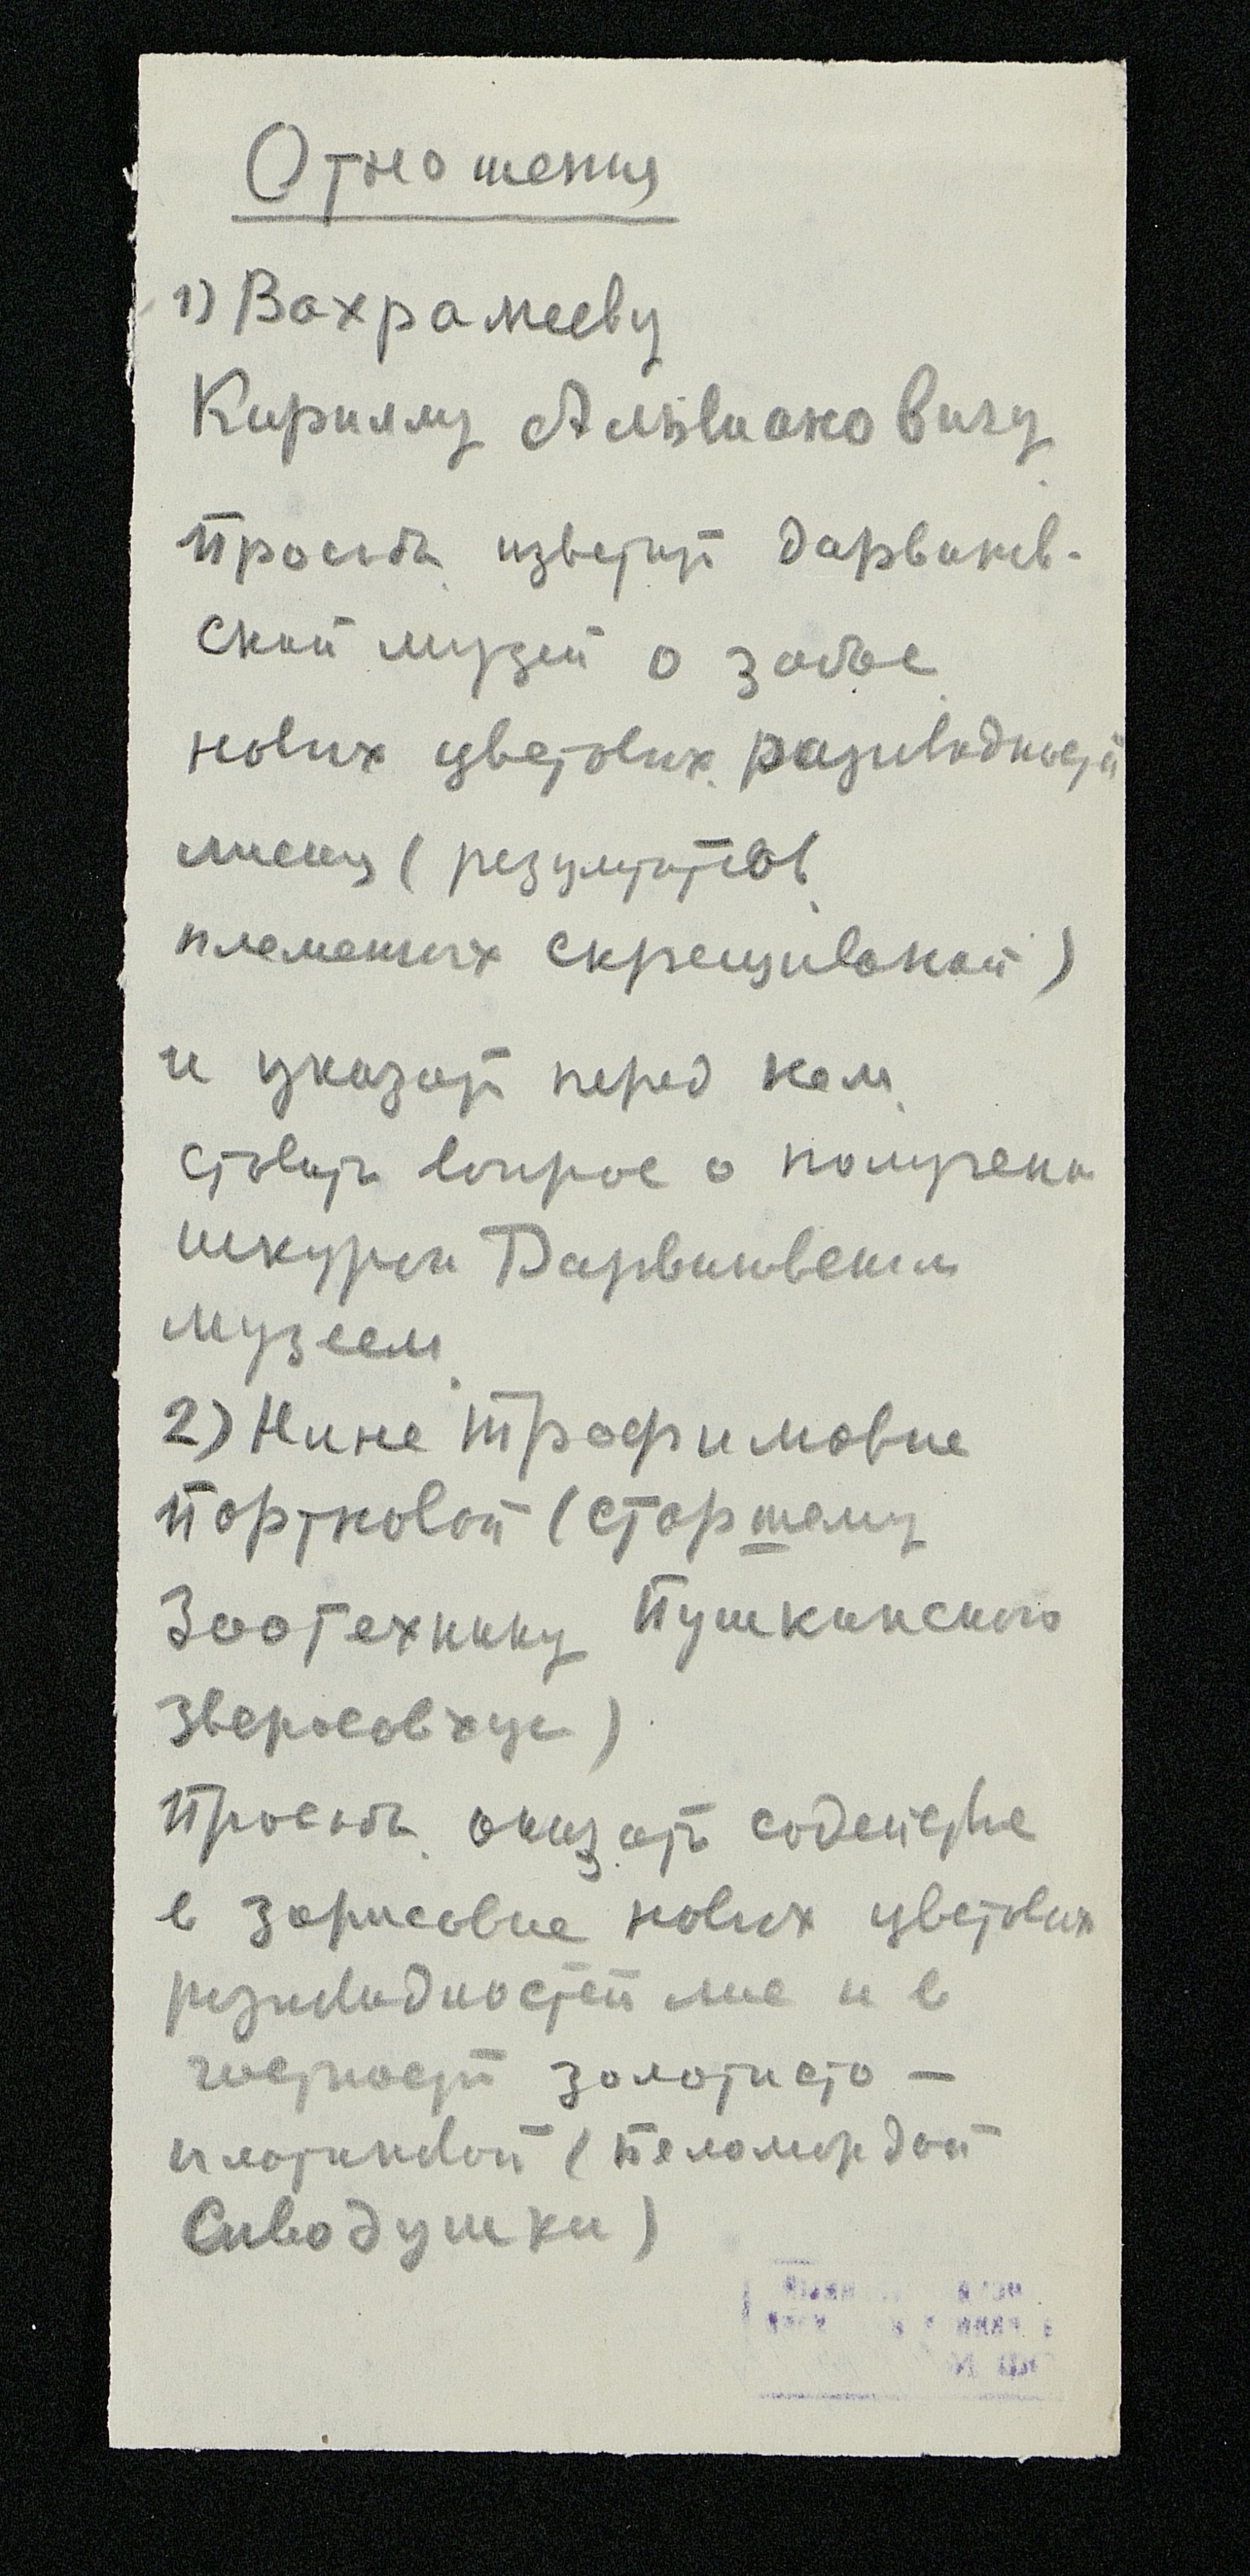 Отношения
1) Вахрамееву
Кириллу Альвиановичу
Просьба известить дарвинов-
ский музей о забое
новых цветовых разновидностей
лисиц (результатов
племенных скрещиваний)
и указать перед кем
ставить вопрос о получении
шкурки Дарвиновским
музеем
2) Нине Трофимовне
Портновой (старшему
Зоотехнику Пушкинского
Зверосовхоза)
Просьба оказать содействие
в зарисовке новых цветовых
разновидностей лис и в
частности золотисто —
платиновой (беломордой
Сиводушки)